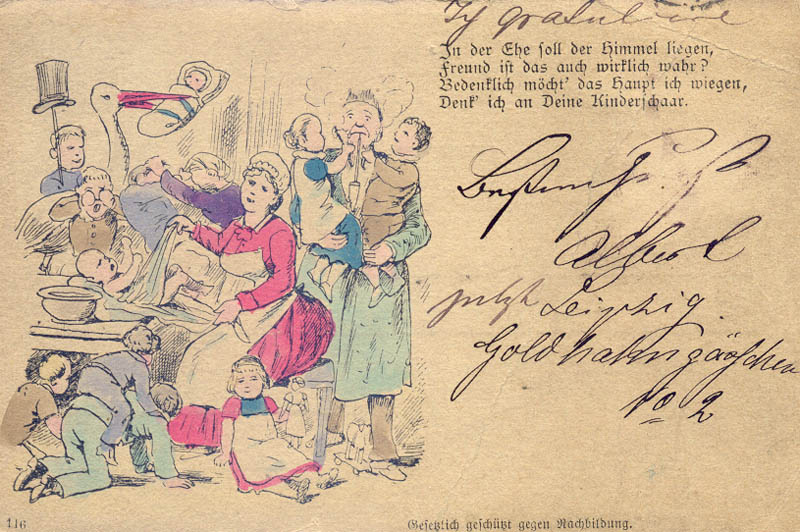 Ich gratuliere
In der Ehe soll der Himmel liegen,
Freund ist das auch wirklich wahr?
Bedenklich möcht' das Haupt ich wiegen,
Denk' ich an Deine Kinderschaar.
Albert
jetzt Leipzig.
Goldhahngäßchen
No 2
116
Gesetzlich geschützt gegen Nachbildung.